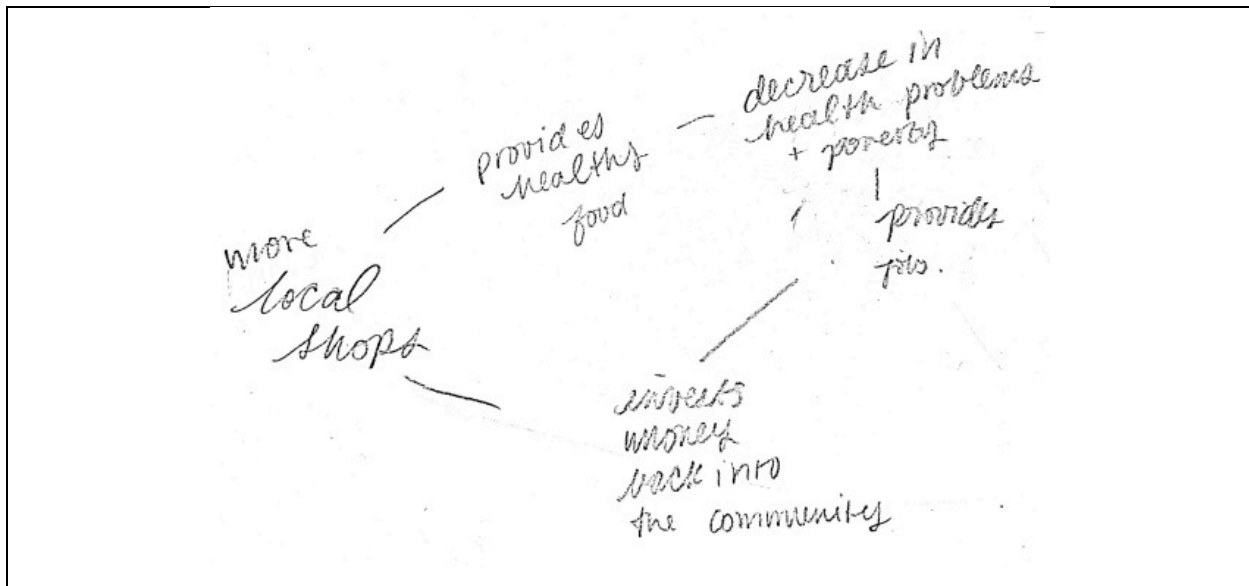 more
local
shops
provides
healthy
food
decrease in
health problems
+ poverty
provides
jobs.
invests
money
back into
the community